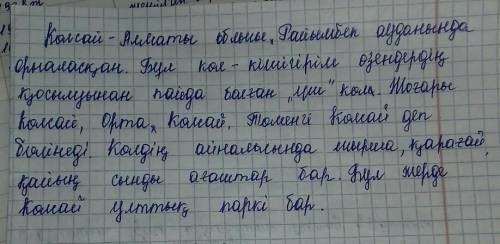 Колсай-Алматы облысы, Райымбек ауданында
орналасқан. Бұл көл - кішігірім өзендердің
қосылуынан пайда болған "үш" көл. Жоғары
Колсай, Орта, Колсай, Төменгі Колсай деп
бөлінеді. Көлдің айналасында шырша, қарағай,
қайың сынды ағаштар бар. Бұл жерде
Колсай ұлттық паркі бар.